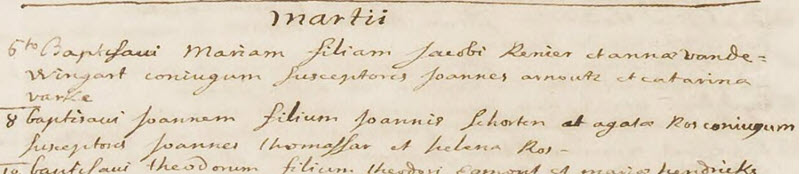 Martii
6to Baptisavi Mariam filiam Jacobi Renier et annæ vande=
Wingart coniugum susceptores Joannes arnoutz et catarina
varke
8 baptisavi Joannem filium Joannis Schorten et agatæ Ros coniugum
susceptores Joannes thomassar et helena Ros-
10 baptisavi theodorum filium theodori Egmont et mariæ hendricks